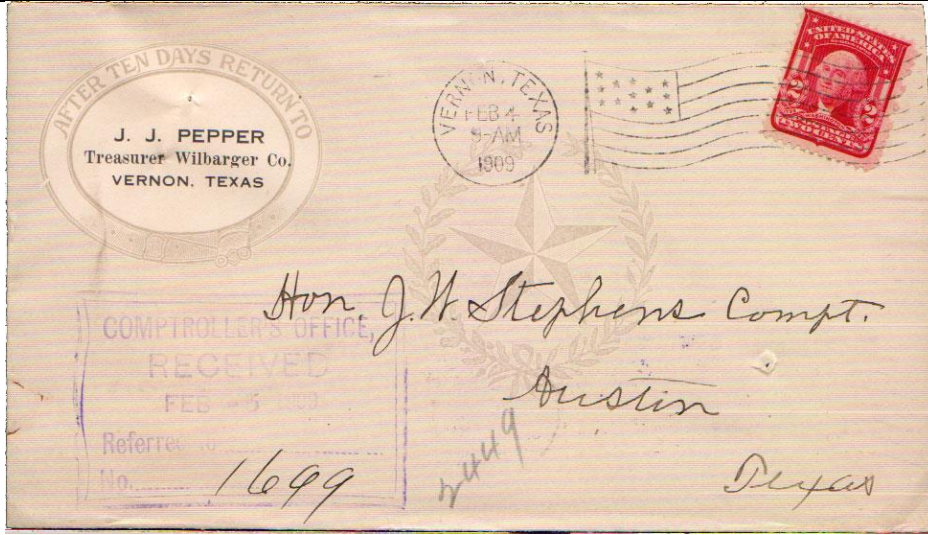 AFTER TEN DAYS RETURN TO
J. J. PEPPER
Treasurer Wilbarger Co.
VERNON, TEXAS
VERNON, TEXAS
FEB 4
AM
1909
UNITED STATES
OF AMERICA
2 2
POSTAGE
TWO CENTS
Hon. J. W. Stephens Compt.
Austin
Texas
COMPTROLLER'S OFFICE,
RECEIVED
FEB 5
Referred to
No. 1699
2449